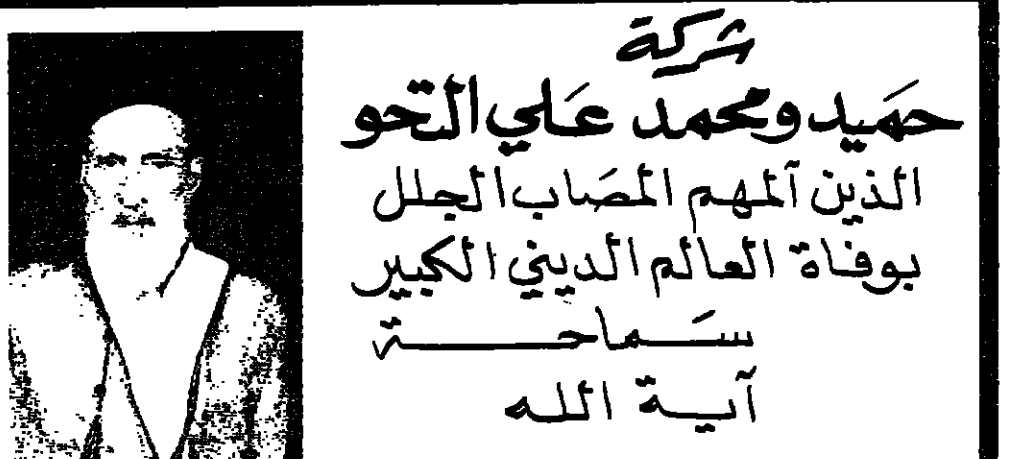 شركة
حميد ومحمد علي التحو
الذين آلمهم المصاب الجلل
بوفاة العالم الديني الكبير
سماحة
آية الله